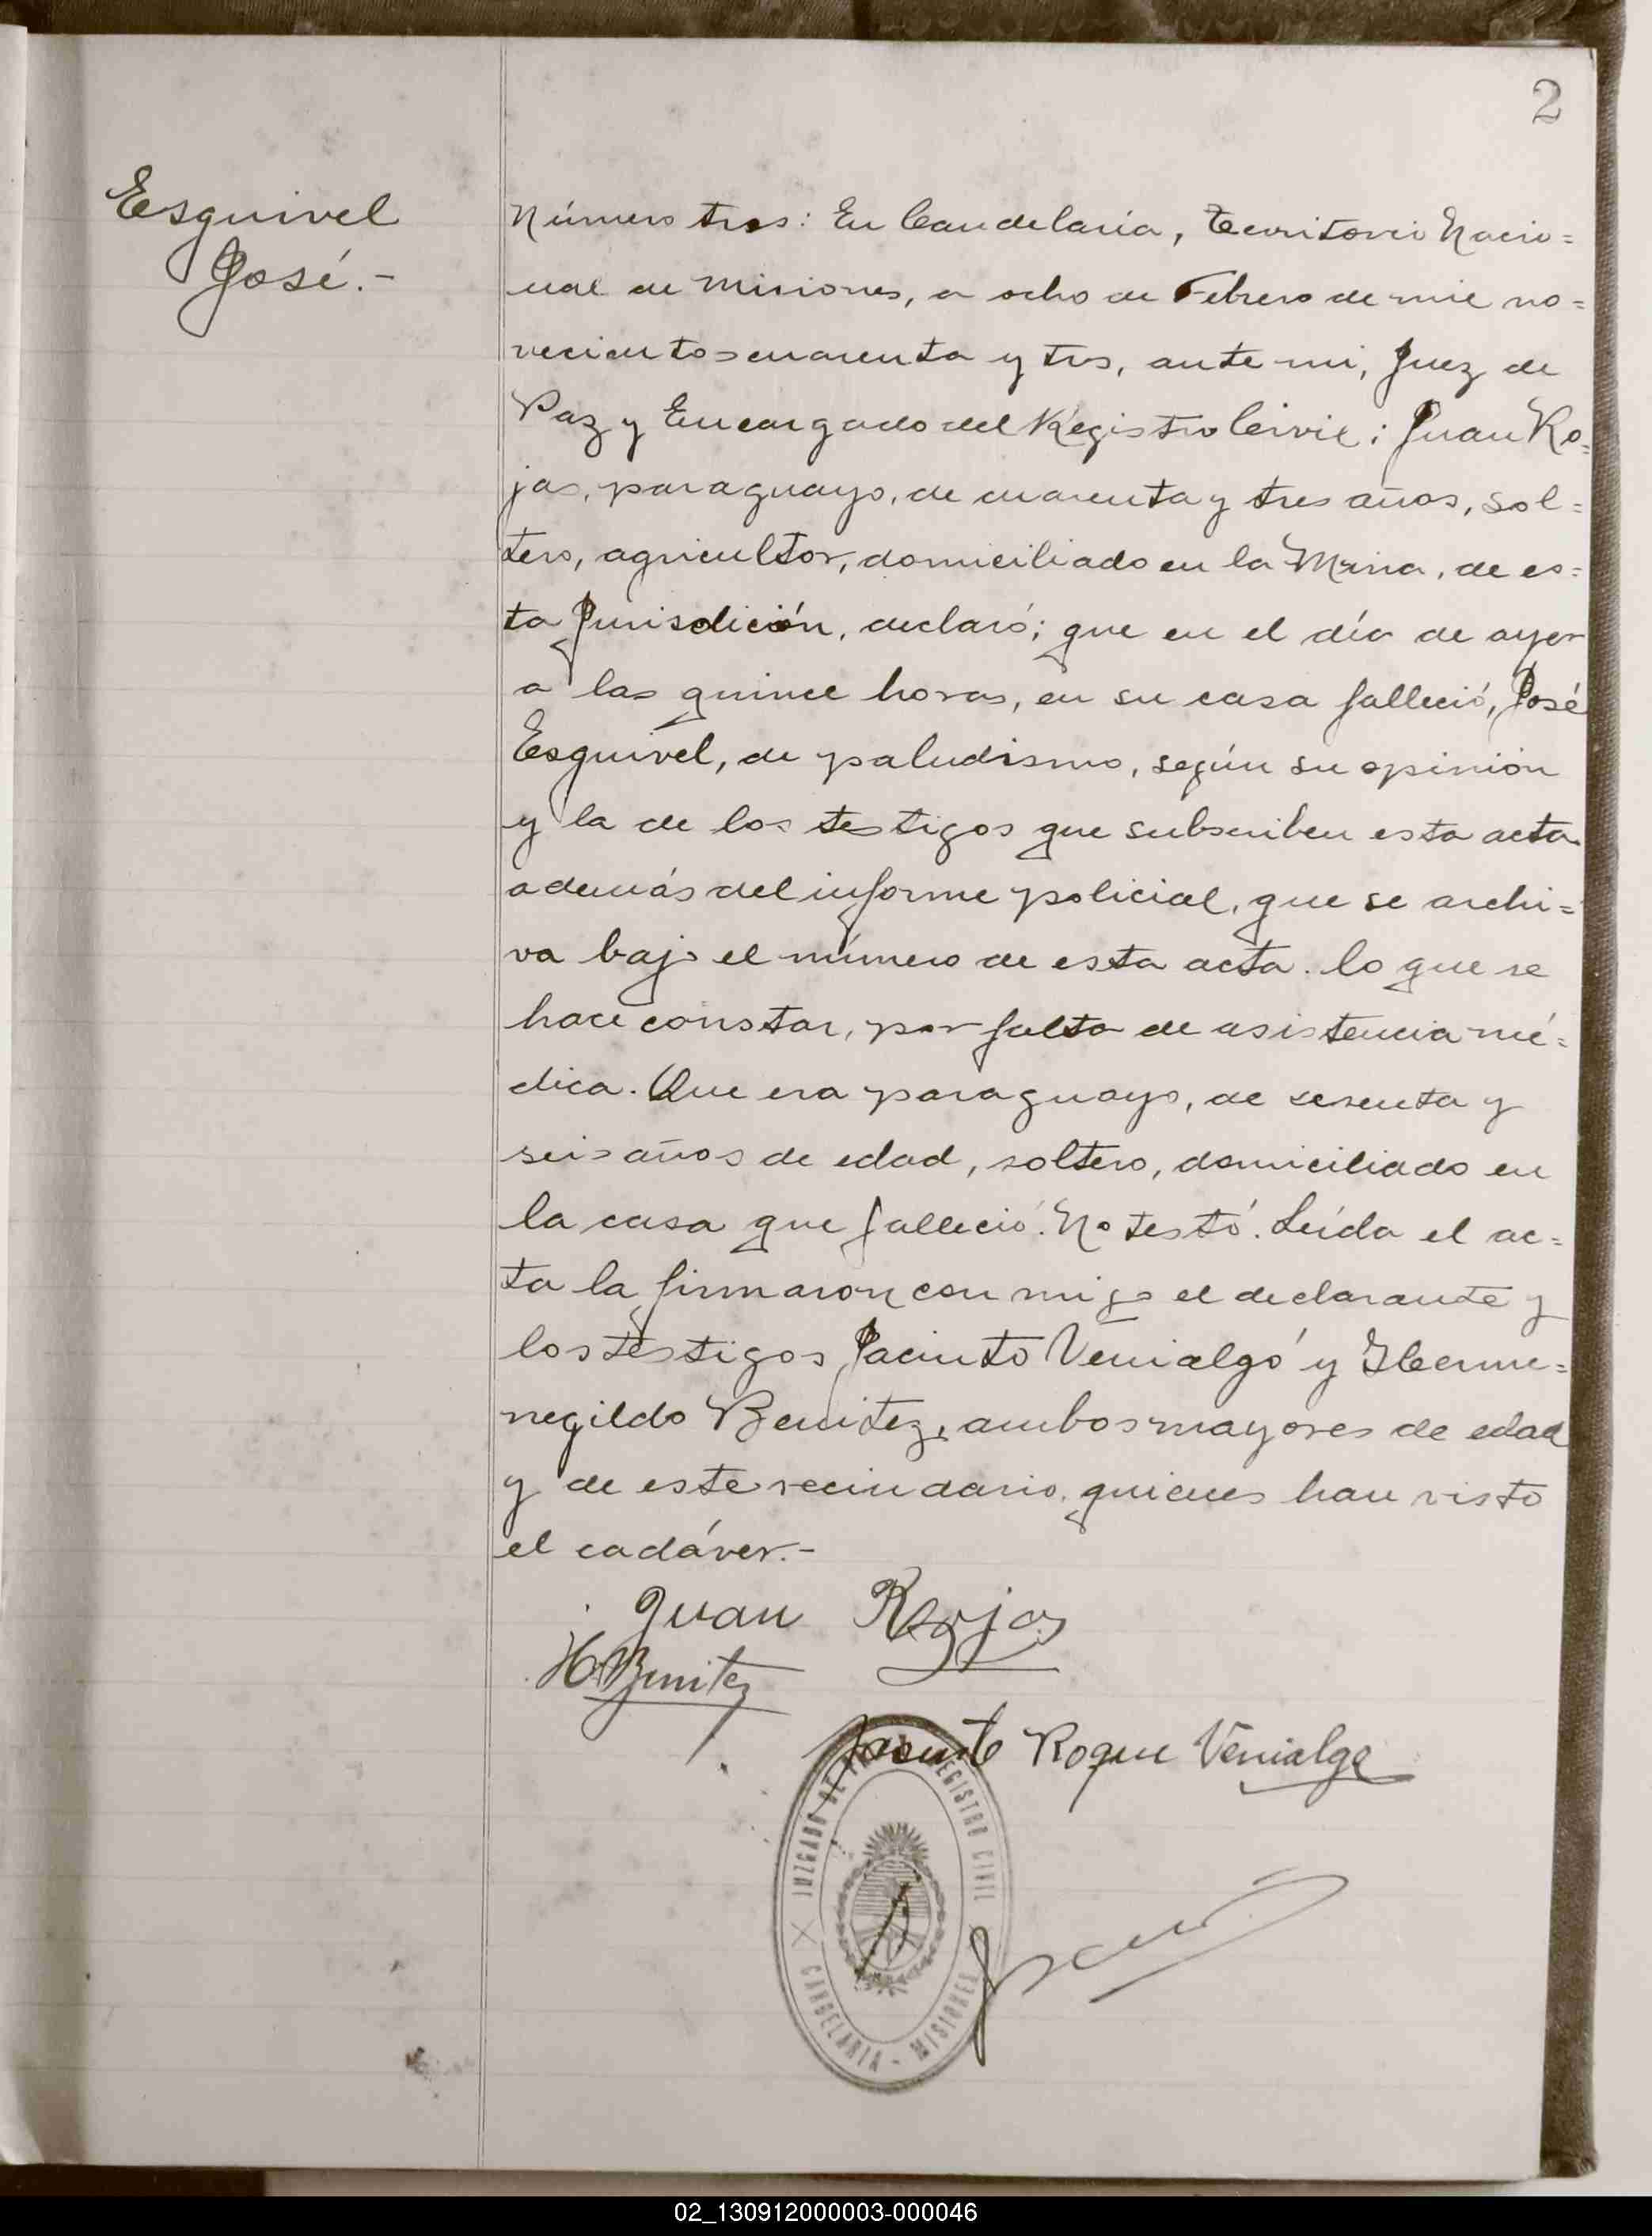 2
Esquivel
José.-
Número tres: En Candelaria, Territorio Nacio=
nal de Misiones, a ocho de Febrero de mil no=
vecientos cuarenta y tres, ante mi, Juez de
Paz y Encargado del Registro Civil; Juan Ro=
jas, paraguayo, de cuarenta y tres años, sol=
tero, agricultor, domiciliado en la Mina, de es=
ta Jurisdición, declaró; que en el día de ayer
a las quince horas, en su casa falleció, José
Esquivel, de paludismo, según su opinión
y la de los testigos que subscriben esta acta
además del informe policial, que se archi=
va bajo el número de esta acta. lo que se
hace constar, por falta de asistencia mé=
dica. Que era paraguayo, de sesenta y
seis años de edad, soltero, domiciliado en
la casa que falleció. No testó. Leída el ac=
ta la firmaron con migo el declarante y
los testigos Jacinto Venialgo y Herme=
negildo Benitez, ambos mayores de edad
y de este vecindario, quienes han visto
el cadáver.-
Juan Rojas
H Benitez
Roque Venialgo
JUZGADO DE PAZ REGISTRO CIVIL
CANDELARIA - MISIONES
02_130912000003-000046